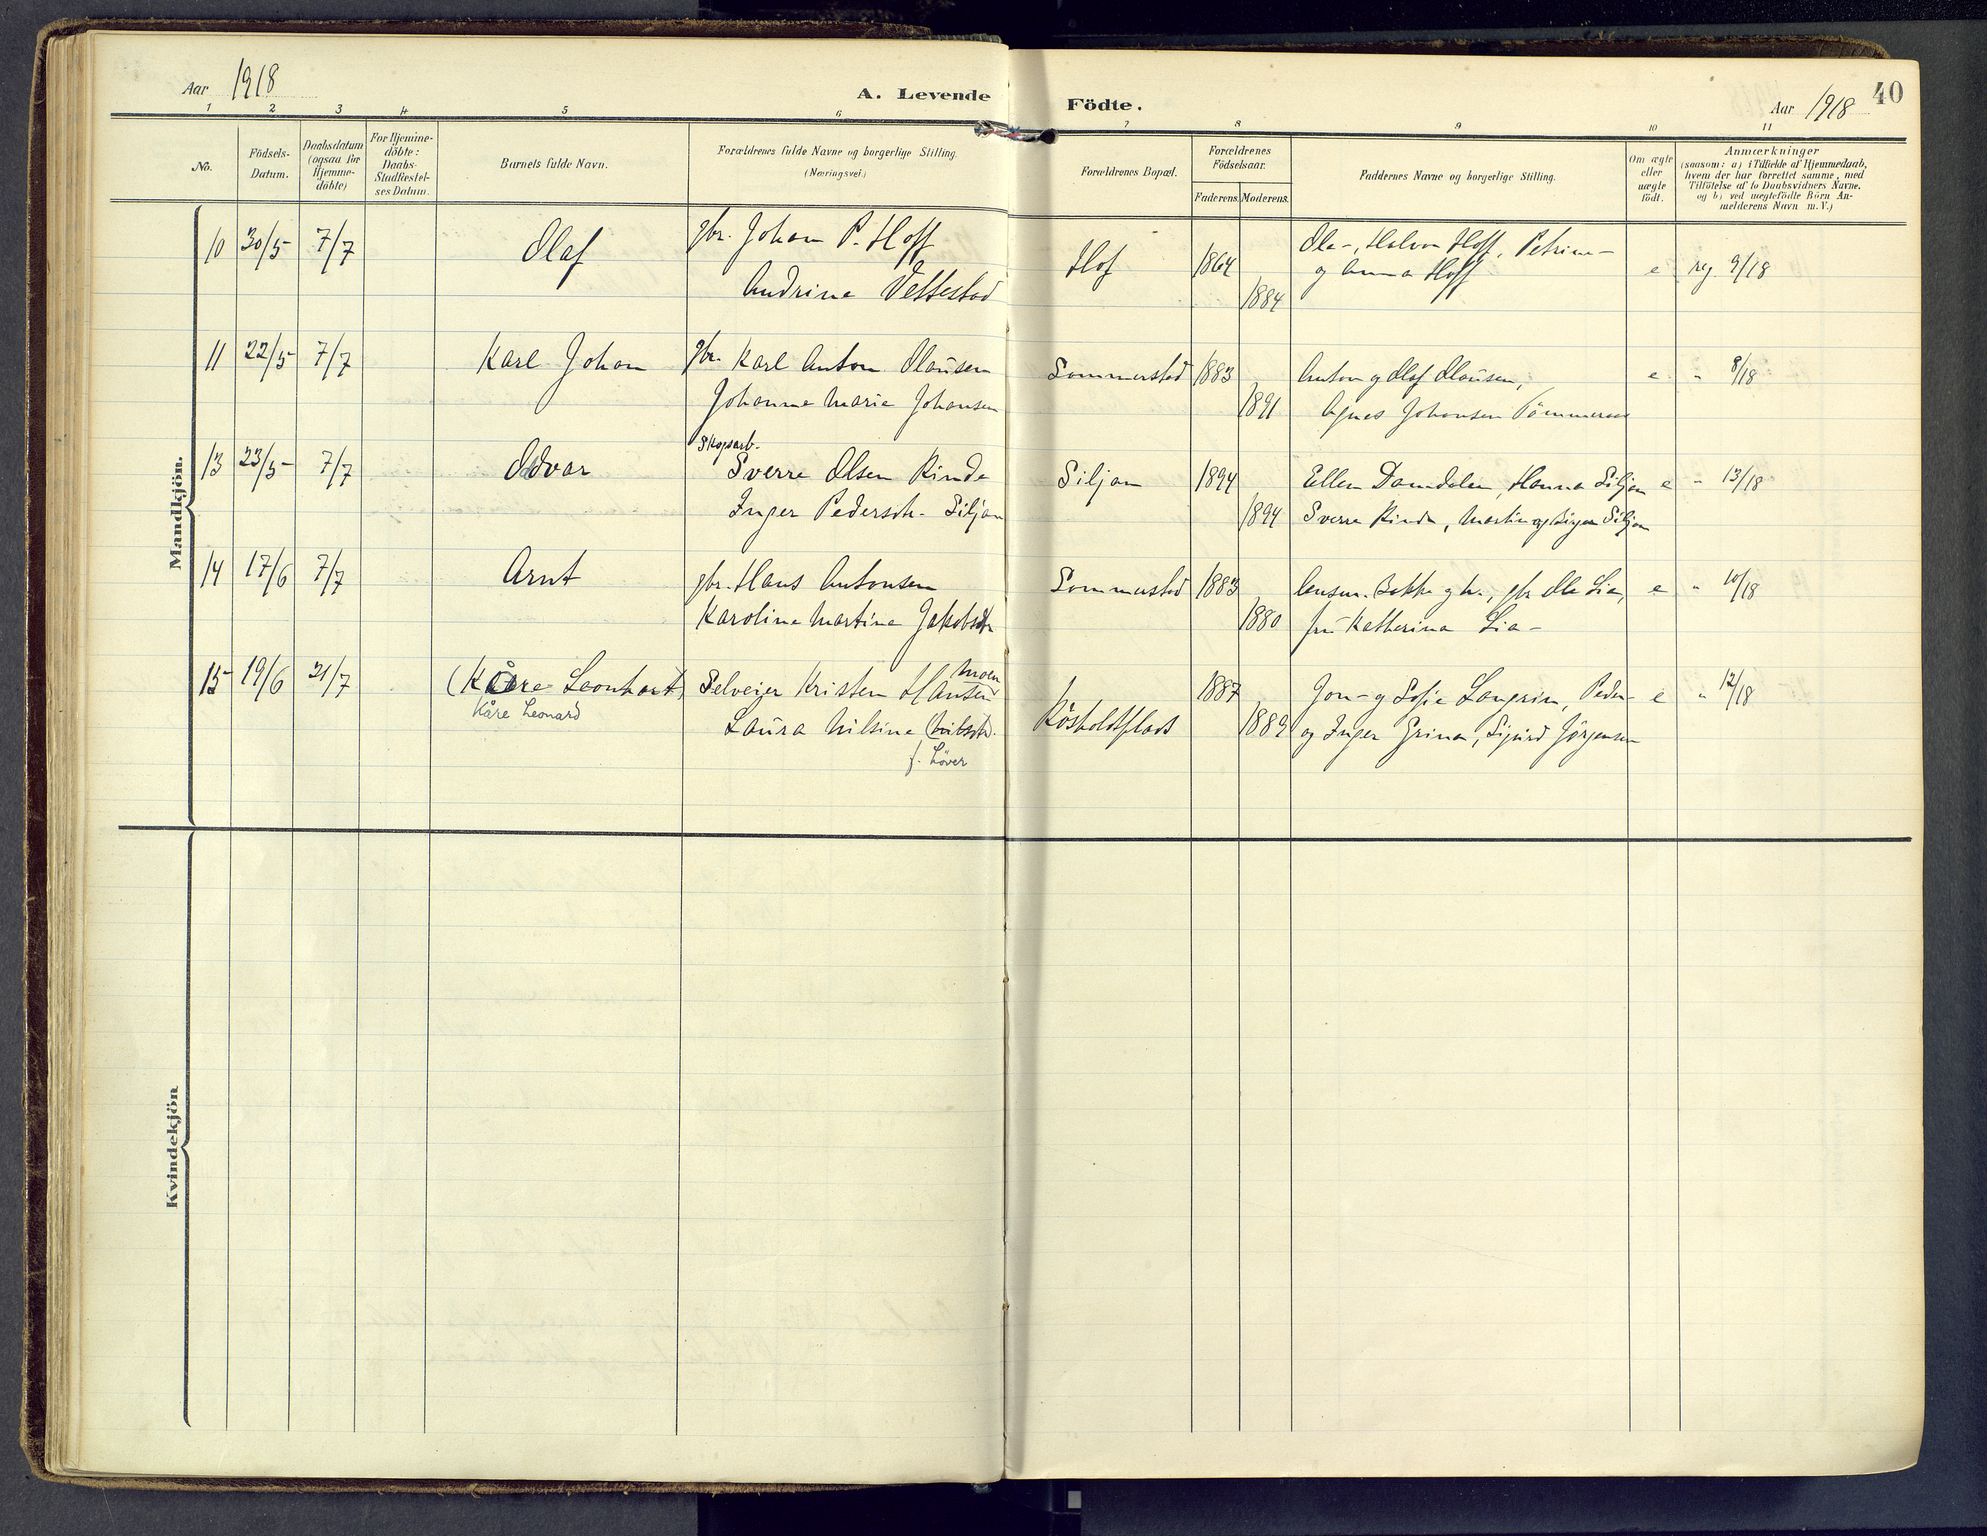 Aar 1918
A. Levende
Födte.
Aar 1918
40
1 2 3 4 5 6 7 8 9 10 11
No.
Födsels-
Datum.
Daabsdatum
(ogsaa for
Hjemme-
döbte)
For Hjemme-
döbte:
Daabs-
Stadfæstel-
ses Datum.
Barnets fulde Navn.
Forældrenes fulde Navne og borgerlige Stilling.
(Næringsvei.)
Forældrenes Bopæl.
Forældrenes
Födselsaar.
Faderens. Moderens.
Faddernes Navne og borgerlige Stilling.
Om ægte
eller
uægte
födt.
Anmærkninger
(saasom: a) i Tilfælde af Hjemmedaab,
hvem der har forrettet samme, med
Tilföielse af to Daabsvidners Navne,
og b) ved uægtefödte Börn An-
melderens Navn m. V.)
Mandkjön.
10 30/5 7/7 Olaf gbr. Johan P. Hoff Hof 1864 Ole-, Halvor Hoff, Petrine- e reg. 9/18
Andrine Vettestad 1884 og Anna Hoff
11 22/5 7/7 Karl Johan gbr. Karl Anton Olausen Sommerstad 1883 Anton og Olaf Olausen, e " 8/18
Johanne Marie Johansen 1891 Agnes Johansen
Skogsarb.
13 23/5 7/7 Odvar Sverre Olsen Rinde Siljan 1894 Ellen Damdalen, Hanna Siljan e " 13/18
Inger Pedersdtr. Siljan 1894 Sverre Rinde, Martin og Birger Siljan
14 17/6 7/7 Arnt gbr. Hans Antonsen Sommerstad 1883 Bakke og h., gbr Ole Lia, e " 10/18
Karoline Martine Jakobsdtr 1880 fru Katherina Lia-
Moen
15 19/6 21/7 (Kåre Leonhart) Selveier Kristen Hansen 1887 Jon- og Sofie Langrin, Peder- e " 12/18
Kåre Leonard Laura Nilsine (Nilsdtr. Kösholtflads 1889 og Inger Grina, Sigurd Jørgensen
f. Löver
Kvindekjön